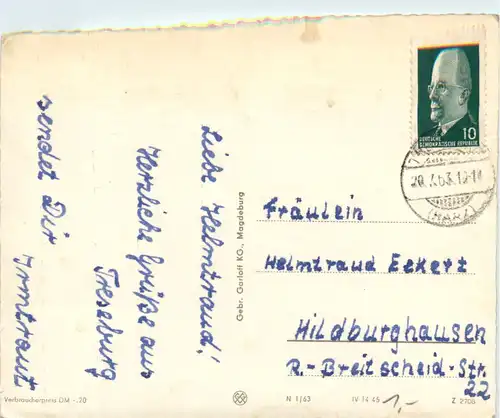 Liebe Helmtraud!
Herzliche Grüße aus
Treseburg
sendet Dir
Irmtraut
Verbraucherpreis DM -.20
Gebr. Garloff KG., Magdeburg
10
DEUTSCHE
DEMOKRATISCHE REPUBLIK
(HARZ)
Fräulein
Helmtraud Eckert
Hildburghausen
R.-Breitscheid-Str.
22
N 1/63 IV/14/45 Z 2700
1,-